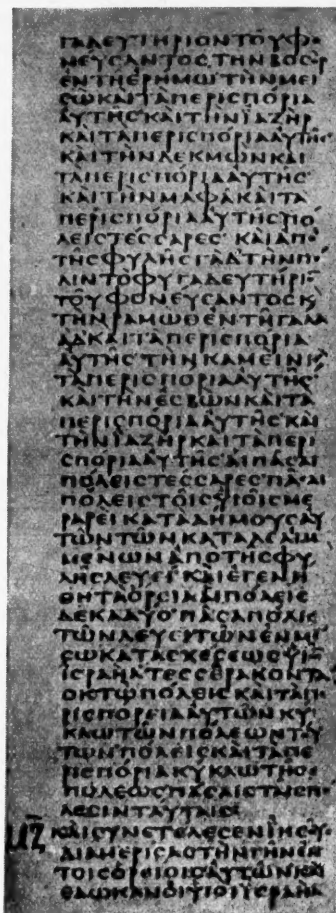 ΓΑΔΕΥΤΗΡΙΟΝΤΟΥΦΟ
ΝΕΥϹΑΝΤΟϹΤΗΝΒΟϹΟΡ
ΕΝΤΗΕΡΗΜΩΤΗΝΜΕΙ
ϹΩΚΑΙΤΑΠΕΡΙϹΠΟΡΙΑ
ΑΥΤΗϹΚΑΙΤΗΝΙΑΖΗΡ
ΚΑΙΤΑΠΕΡΙϹΠΟΡΙΑΑΥΤΗϹ
ΚΑΙΤΗΝΔΕΚΜΩΝΚΑΙ
ΤΑΠΕΡΙϹΠΟΡΙΑΑΥΤΗϹ
ΚΑΙΤΗΝΜΑΦΑΚΑΙΤΑ
ΠΕΡΙϹΠΟΡΙΑΑΥΤΗϹΠΟ
ΛΕΙϹΤΕϹϹΑΡΕϹ ΚΑΙΑΠΟ
ΤΗϹΦΥΛΗϹΓΑΔΤΗΝΠΟ
ΛΙΝΤΟΦΥΓΑΔΕΥΤΗΡΙΟ
ΤΟΥΦΟΝΕΥϹΑΝΤΟϹΚ
ΤΗΝΡΑΜΩΘΕΝΤΗΓΑΛΑ
ΑΔΚΑΙΤΑΠΕΡΙϹΠΟΡΙΑ
ΑΥΤΗϹΤΗΝΚΑΜΕΙΝΚ
ΤΑΠΕΡΙϹΠΟΡΙΑΑΥΤΗϹ
ΚΑΙΤΗΝΕϹΒΩΝΚΑΙΤΑ
ΠΕΡΙϹΠΟΡΙΑΑΥΤΗϹΚΑΙ
ΤΗΝΙΑΖΗΡΚΑΙΤΑΠΕΡΙ
ϹΠΟΡΙΑΑΥΤΗϹΑΙΠΑϹΑΙ
ΠΟΛΕΙϹΤΕϹϹΑΡΕϹΠΑϹΑΙ
ΠΟΛΕΙϹΤΟΙϹΥΙΟΙϹΜΕ
ΡΑΡΕΙΚΑΤΑΔΗΜΟΥϹΑΥ
ΤΩΝΤΩΝΚΑΤΑΛΕΛΙΜ
ΜΕΝΩΝΑΠΟΤΗϹΦΥ
ΛΗϹΛΕΥΕΙΚΑΙΕΓΕΝΗ
ΘΗΤΑΟΡΙΑΑΙΠΟΛΕΙϹ
ΔΕΚΑΔΥΟΠΑϹΑΠΟΛΙϹ
ΤΩΝΛΕΥΕΙΤΩΝΕΝΜΕ
ϹΩΚΑΤΑϹΧΕϹΕΩϹΥΙΩ
ΙϹΡΑΗΛΤΕϹϹΕΡΑΚΟΝΤΑ
ΟΚΤΩΠΟΛΕΙϹΚΑΙΤΑΠΕ
ΡΙϹΠΟΡΕΙΑΑΥΤΩΝΚΥ
ΚΛΩΤΩΝΠΟΛΕΩΝΤΟΥ
ΤΩΝΠΟΛΕΙϹΚΑΙΤΑΠΕ
ΡΙϹΠΟΡΙΑΚΥΚΛΩΤΗϹ
ΠΟΛΕΩϹΠΑϹΑΙϹΤΑΙϹΠΟ
ΛΕϹΙΝΤΑΥΤΑΙϹ
ΜΖ ΚΑΙϹΥΝΕΤΕΛΕϹΕΝΙΗϹΟΥϹ
ΔΙΑΜΕΡΙϹΑϹΤΗΝΓΗΝΕΝ
ΤΟΙϹΟΡΙΟΙϹΑΥΤΩΝΚΑΙ
ΕΔΩΚΑΝΟΙΥΙΟΙΙϹΡΑΗΛ